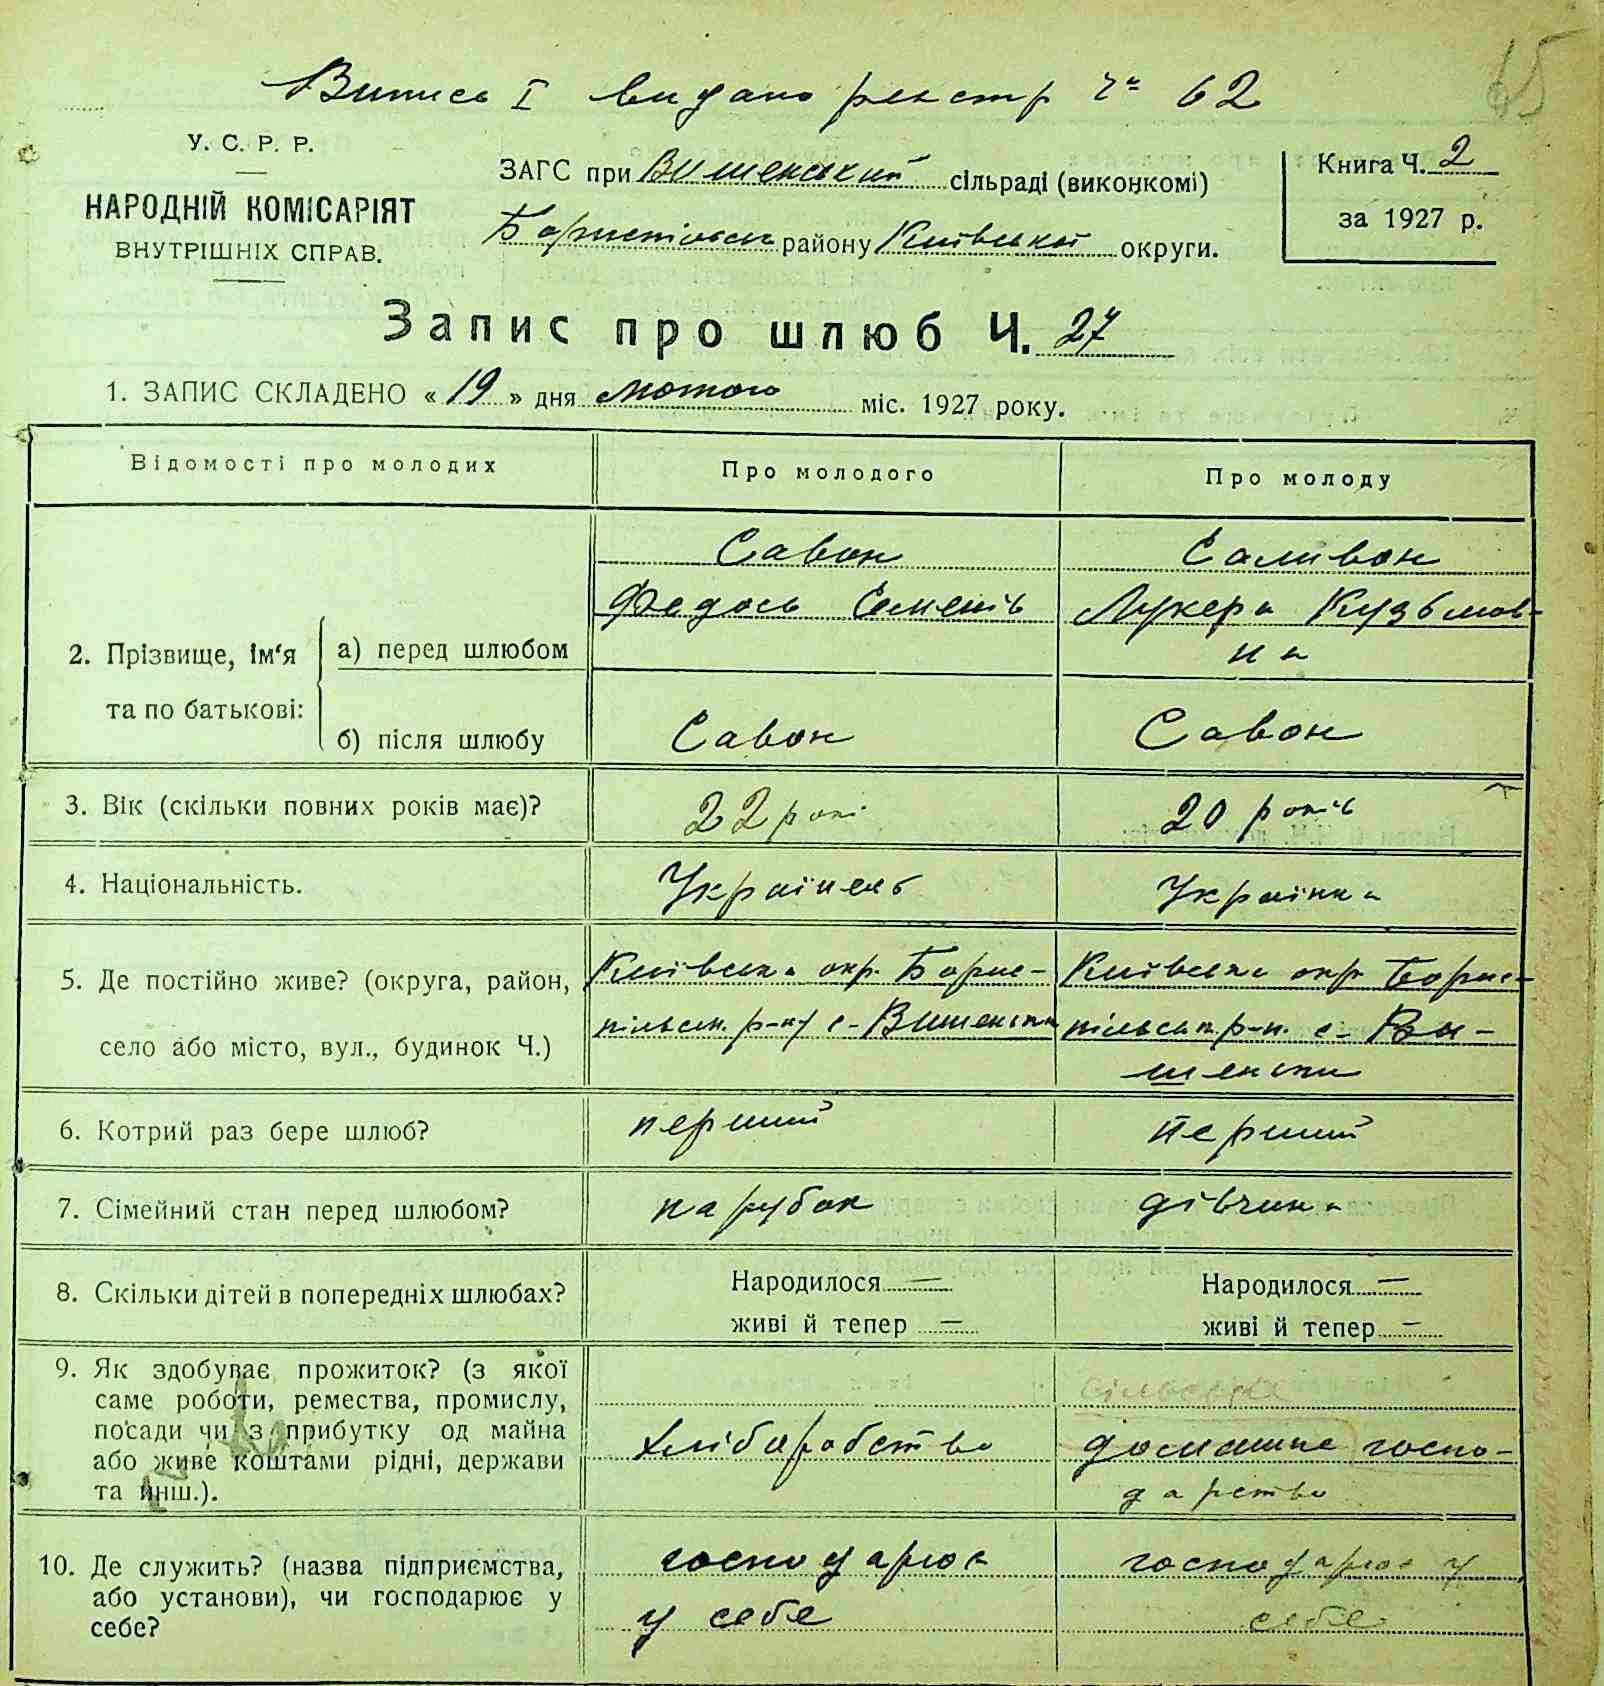 65
Випись I видано реєстр Ч 62
У. С. Р. Р.
НАРОДНІЙ КОМІСАРІЯТ
ВНУТРІШНІХ СПРАВ.
ЗАГС при Вишенський сільраді (виконкомі)
Бориспільськ району Київської округи.
Книга Ч. 2
за 1927 р.
Запис про шлюб Ч. 27
1. ЗАПИС СКЛАДЕНО « 19 » дня лютого міс. 1927 року.
Відомості про молодих
Про молодого
Про молоду
2. Прізвище, ім‘я та по батькові:
а) перед шлюбом
Савон
Федось Семенів
Саливон
Лукера Кузьмов-
на
б) після шлюбу
Савон
Савон
3. Вік (скільки повних років має)?
22 рокі
20 років
4. Національність.
Українець
Українка
5. Де постійно живе? (округа, район,
село або місто, вул., будинок Ч.)
Київська окр. Борис-
пільськ. р-ну с- Вишеньки
Київська окр Борис-
пільськ р-н. с- Ви-
шеньки
6. Котрий раз бере шлюб?
перший
перший
7. Сімейний стан перед шлюбом?
парубок
дівчина
8. Скільки дітей в попередніх шлюбах?
Народилося —
живі й тепер —
Народилося —
живі й тепер —
9. Як здобуває прожиток? (з якої
саме роботи, ремества, промислу,
посади чи з прибутку од майна
або живе коштами рідні, держави
та инш.).
хліборобство
сільське
домашнє госпо-
дарство
10. Де служить? (назва підприємства,
або установи), чи господарює у
себе?
господарює
у себе
господарює у
себе